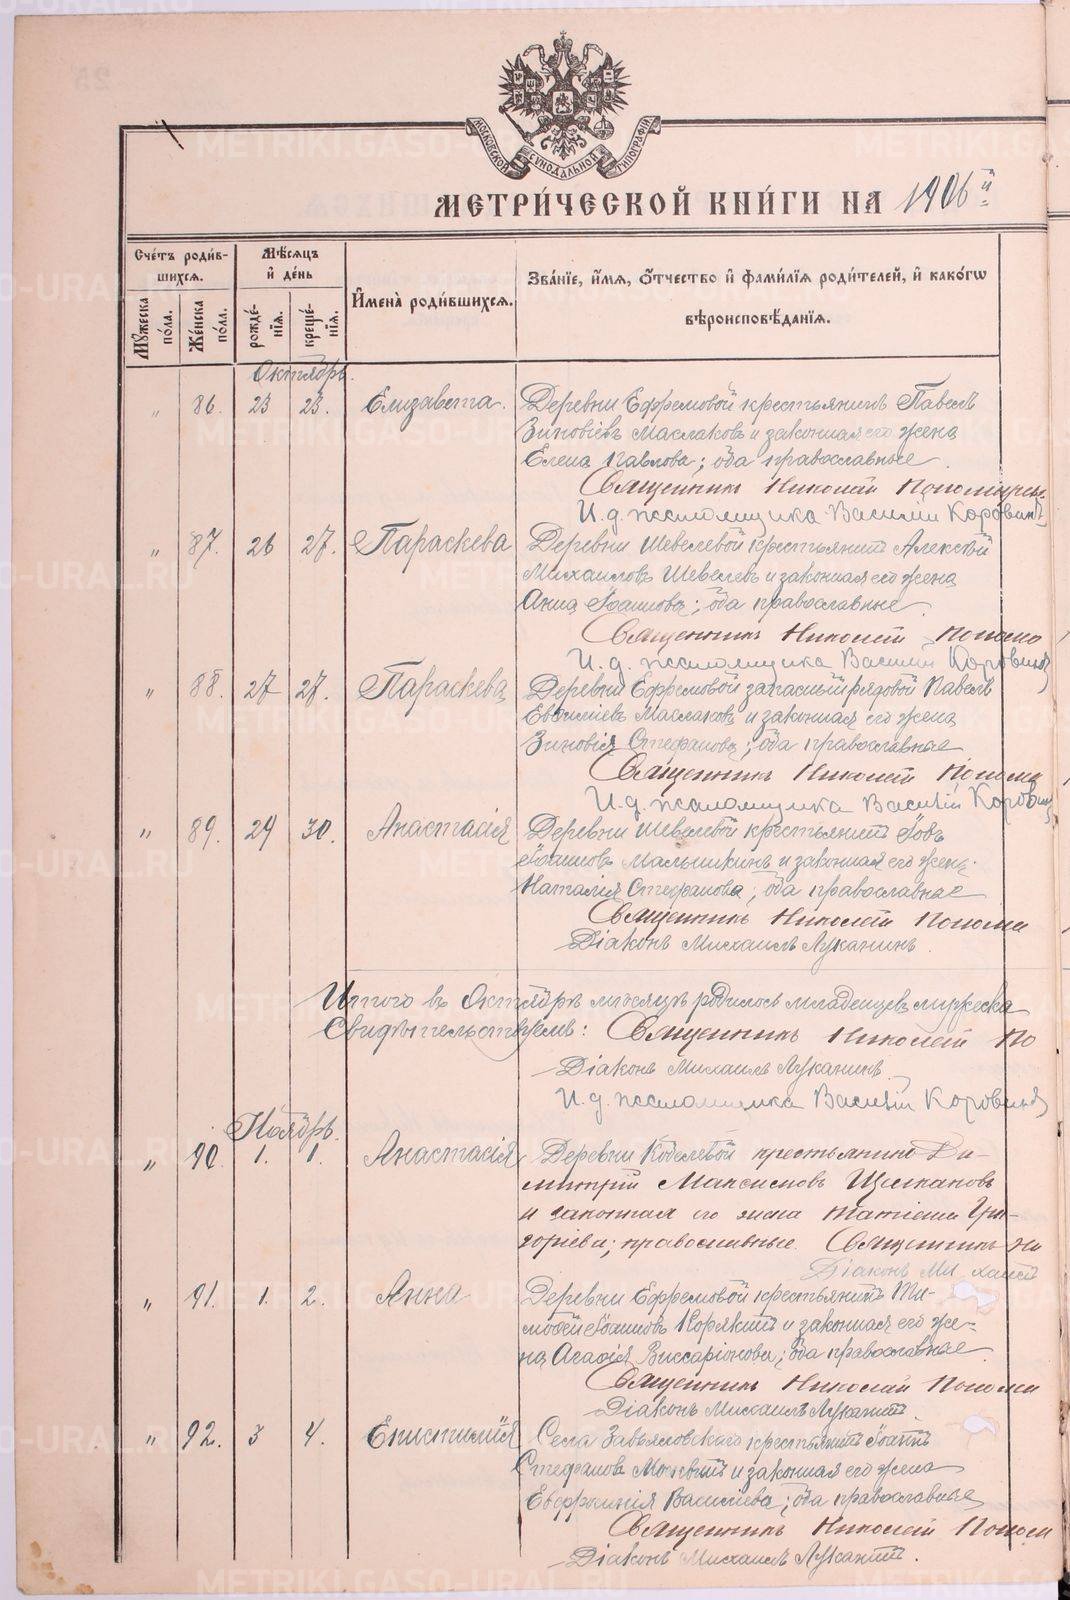 МОСКОВСКОЙ СѴНОДАЛЬНОЙ ТИПОГРАФІИ
МЕТРИ́ЧЕСКОЙ КНИ́ГИ НА 1906й
Сче́тъ роди́вшихся.
Мꙋжеска по́ла.
Же́нска по́ла.
Мѣ́сяцъ и҆ де́нь
рожде́нїя.
креще́нїя.
И҆мена̀ роди́вшихся.
Зва́нїе, и҆́мя, ѻ҆́тчество и҆ фами́лїя роди́телей, и҆ како́гѡ
вѣроисповѣ́данїя.
Октябрь.
„ 86. 23 23. Елизавета. Деревни Ефремовой крестьянинъ Павелъ
Зиновіевъ Маслаковъ и законная его жена
Елена Павлова; оба православные.
Священникъ Николай
И.д. псаломщика Василій Коровинъ
„ 87. 26 27. Параскева Деревни Шевелевой крестьянинъ Алексѣй
Михаиловъ Шевелевъ и законная его жена
Анна Іоаннова; оба православные.
Священникъ Николай Понома
И.д. псаломщика Василій Коровинъ
„ 88. 27 27. Параскева Деревни Ефремовой запасный рядовой Павелъ
Евѳиміевъ Маслаковъ и законная его жена
Зиновія Стефанова; оба православные
Священникъ Николай Понома
И.д. псаломщика Василій Коровинъ
„ 89. 29 30. Анастасія Деревни Шевелевой крестьянинъ Іовъ
Іоанновъ Малышкинъ и законная его жена
Наталія Стефанова; оба православные
Священникъ Николай Понома
Діаконъ Михаилъ Луканинъ.
Итого въ Октябрѣ мѣсяцѣ родилось младенцевъ мужеска
Свидѣтельствуемъ: Священникъ Николай По
Діаконъ Михаилъ Луканинъ
И.д. псаломщика Василій Коровинъ
Ноябрь.
„ 90. 1. 1. Анастасія Деревни Кобелевой крестьянинъ Ди-
митрій Максимовъ
и законная его жена Татіана Гри-
горіева; православные. Священникъ Ни
Діаконъ Михаилъ
„ 91. 1. 2. Анна Деревни Ефремовой крестьянинъ Ти-
моѳей Іоанновъ Корякинъ и законная его же-
на Агаѳія Виссаріонова; оба православные
Священникъ Николай Понома
Діаконъ Михаилъ Луканинъ.
„ 92. 3 4. Епистимія Села Завьяловскаго крестьянинъ Іоаннъ
Стефановъ и законная его жена
Евфросинія Василіева; оба православные
Священникъ Николай Поном
Діаконъ Михаилъ Луканинъ.
METRIKI.GASO-URAL.RU